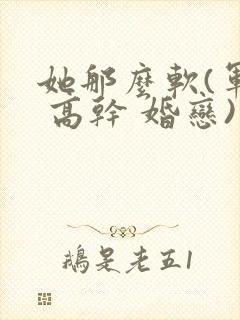 她那麼軟(軍
高幹 婚戀)
鵝是老五1